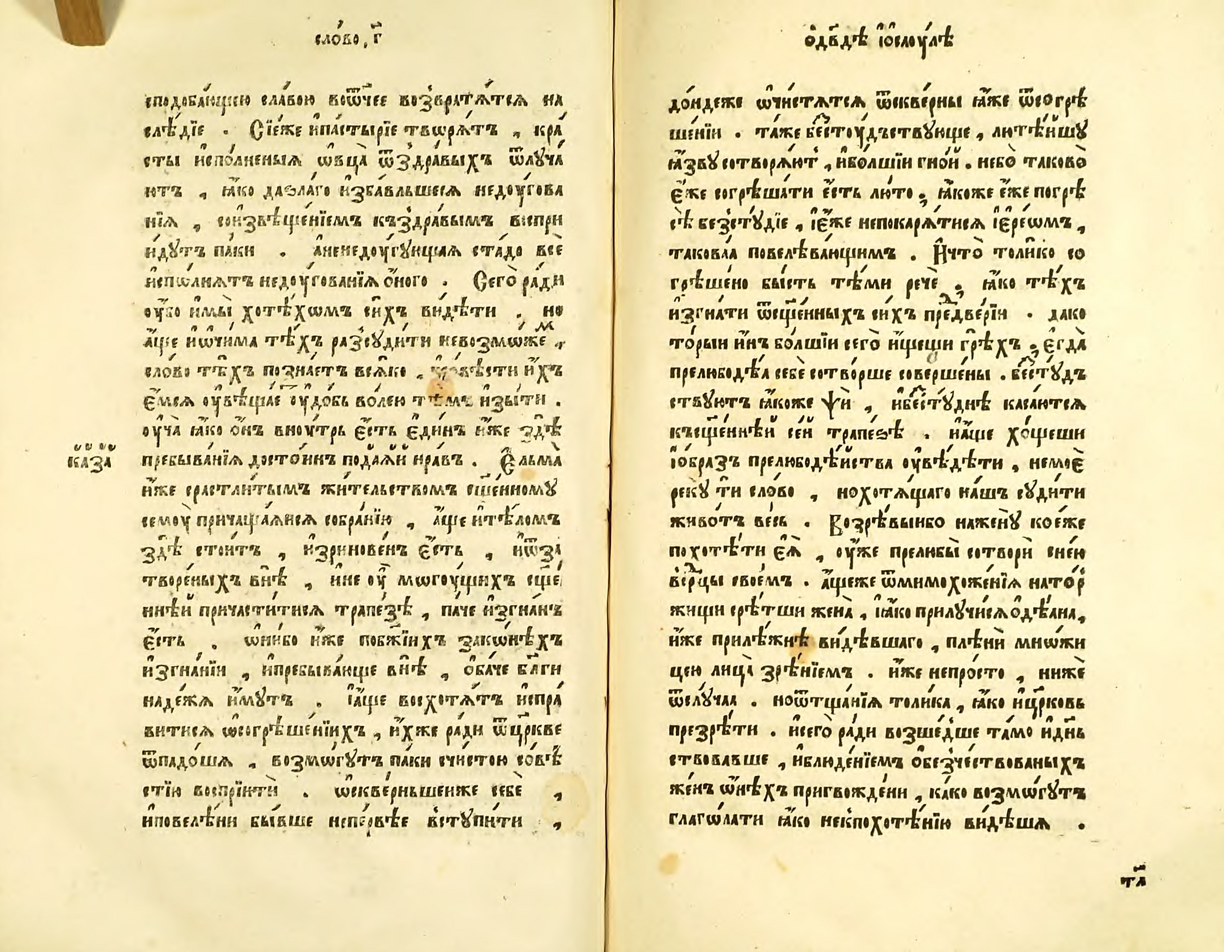 сло́во, г҃
сподоба́ющею славою вѡ҆́тчее возвратѧ́тсѧ на
слѣ́дїе . Сїе́же и҆па́стырїе творѧ́тъ , кра
сты и҆спо́лненыѧ ѡ҆вца̀ ѿздра́выхъ ѿлуча́
ютъ , ꙗ҆́ко даѕлаго и҆зба́вльшесѧ недоу́гова
нїѧ , сои҆звѣще́нїемъ къздра́вымъ воспри
и҆́дутъ па́ки . а҆ненедоу́гующаѧ стадо всѐ
и҆спо́лнѧтъ недоу́гованїѧ о҆́ного . Сего̀ ра́ди
оу҆́бо и҆мы̀ хотѣ́хомъ си́хъ ви́дѣти , но
а҆́ще и҆ѻ҆чима тѣ́хъ разсуди́ти невозмо́жеⷨ ,
сло́во тѣ́хъ позна́етъ всѧ́ко , и҆́хъ
є҆́мсѧ оу҆вѣща́е оу҆до́бь во́лею тѣ́мъ изы́ти .
оу҆ча̀ ꙗ҆́ко о҆́нъ вноу́трь є҆́сть є҆ди́нъ и҆́же здѣ̀
пребыва́нїѧ досто́инъ пода́ѧй нра́въ . Є҆льма̀
и҆́же срастлѣ́ннымъ жи́тельствомъ сщ҃е́нному
семоу̀ причаща́ѧисѧ собра́нїю , а҆́ще и҆тѣ́ломъ
здѣ̀ стои́тъ , и҆зринове́нъ є҆́сть , и҆ѿза
творе́ныхъ внѣ̀ , и҆не оу҆̀ могоу́щихъ сщ҃е́
ннѣй причасти́тисѧ трапе́зѣ , па́че и҆згна́нъ
є҆́сть . ѻ҆ни́бо и҆́же побж҃їихъ зако́нѣхъ
и҆згна́нїи , и҆пребыва́юще внѣ̀ , ѻ҆ба́че бл҃ги
наде́жѧ и҆́мутъ . і҆а҆́ще восхотѧ́тъ и҆спра́
витисѧ ѡ҆согрѣше́нїихъ , и҆́хже ра́ди ѿцр҃кве
ѿпадо́шѧ , возмо́гутъ па́ки счи́стою со́вѣ
стїю воспрїи́ти . ѡ҆скверньше́иже себѐ ,
и҆повелѣ́ни бы́вше непе́рвѣе вступи́ти ,
каза
ѻ҆дв҃дѣ і҆ѻ҆саоу́лѣ
до́ндеже ѡ҆чи́стѧтсѧ ѿскве́рны ꙗ҆́же ѿсогрѣ
ше́нїи . та́же бе́стоудьствующе , лютѣ́йшу
ꙗ҆́зву сотворѧ́ют , и҆бо́лшїи гно́й . небо̀ таково̀
є҆́же согрѣша́ти є҆́сть лю́то , ꙗ҆́коже є҆́же погрѣ
сѣ̀ безсту́дїе , і҆є҆́же непокарѧ́тисѧ і҆ерео́мъ ,
такова́ѧ повелѣва́ющимъ . И҆что̀ толи́ко со
грѣшено бы́сть тѣ́ми речѐ , ꙗ҆́ко тѣ́хъ
и҆згна́ти ѿсщ҃е́нныхъ си́хъ предве́рїи . дако
торы́и и҆́нъ бо́лшїи сего̀ и҆́щеши грѣ́хъ , є҆гда̀
прелюбодѣ́ѧ себѐ сотво́рше соверше́ны . бе́студь
ствуютъ ꙗ҆́коже ѱѝ , и҆бе́студнѣ каса́ютсѧ
къщ҃е́ннѣй се́й трапе́зѣ . и҆а҆́ще хо́щеши
і҆ѻ҆́бразъ прелюбодѣ́йства оу҆вѣ́дѣти , немоѐ
реку́ ти сло́во , нохотѧ́щаго на́шъ суди́ти
живо́тъ ве́сь . Возрѣ́выибо нажену̀ коє҆же
похотѣ́ти є҆ѧ̀ , оу҆́же прелюбы̀ сотворѝ снею
вс҃рдцы свое́мъ . а҆́щеже ѿмимохоже́нїѧ нато́р
жищи срѣ́тши жена̀ , ꙗ҆́ко прилучи́сѧ ѻ҆дѣ́ана ,
и҆́же прилѣ́жнѣ ви́дѣвшаго , плѣнѝ мно́жи
цею лица̀ зрѣ́нїемъ . и҆́же непро́сто , нижѐ
ѿслу́чаѧ . ноѿтща́нїѧ толи́ка , ꙗ҆́ко и҆цр҃ковь
презрѣ́ти . и҆сего̀ ра́ди возше́дше та́мо и҆дн҃ь
ствовавше , и҆блюде́нїемъ обезче́ствованыхъ
же́нъ ѻ҆́нѣхъ пригвожде́ни , ка́ко возмо́гутъ
глаго́лати ꙗ҆́ко некпохотѣ́нїю ви́дѣшѧ .